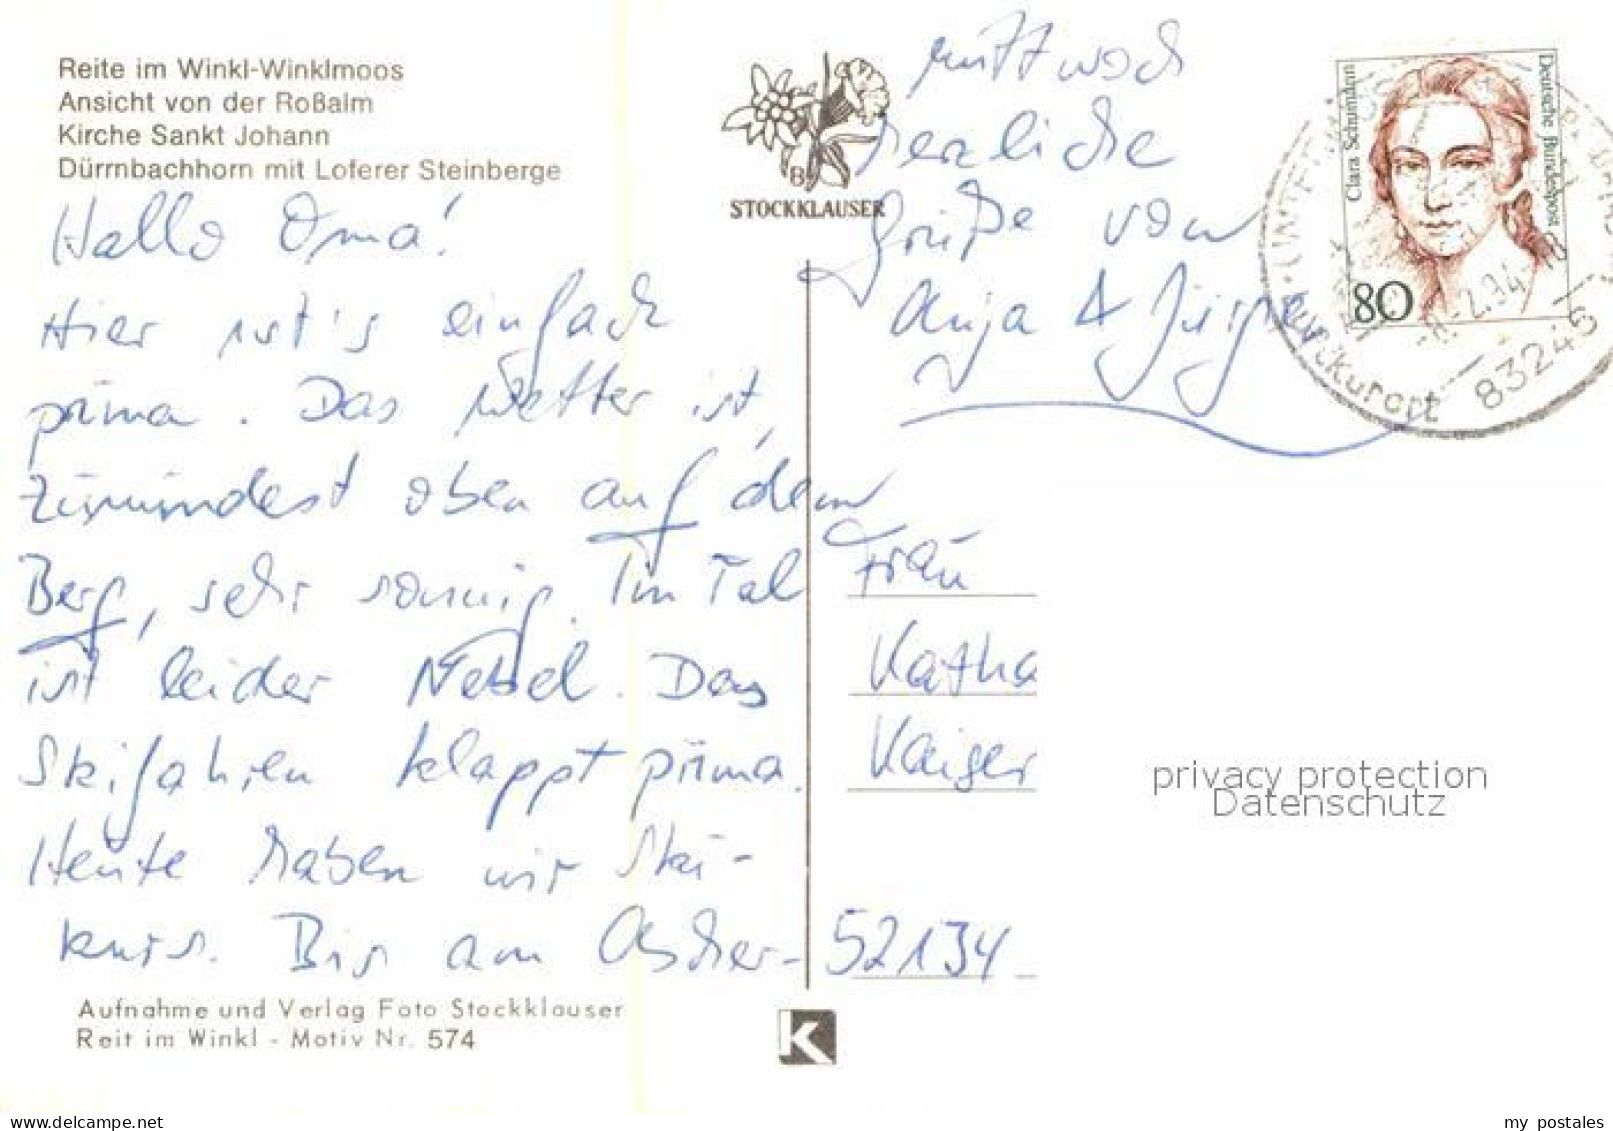 Reite im Winkl-Winklmoos
Ansicht von der Roßalm
Kirche Sankt Johann
Dürrnbachhorn mit Loferer Steinberge
STOCKKLAUSER
Hallo Oma!
Hier ist's einfach
prima. Das Wetter ist,
zumindest oben auf dem
Berg, sehr sonnig. Im Tal
ist leider Nebel. Das
Skifahren klappt prima.
Heute haben wir Ski-
kurs. Bis am Ascher-
mittwoch
herzliche
Grüße von
Anja & Jürgen
Clara Schumann
Deutsche Bundespost
80
2.94-18
Luftkurort 83246
Frau
Katha
Kaiser
52134
privacy protection
Datenschutz
Aufnahme und Verlag Foto Stockklauser
Reit im Winkl - Motiv Nr. 574
K
www.delcampe.net
my_postales